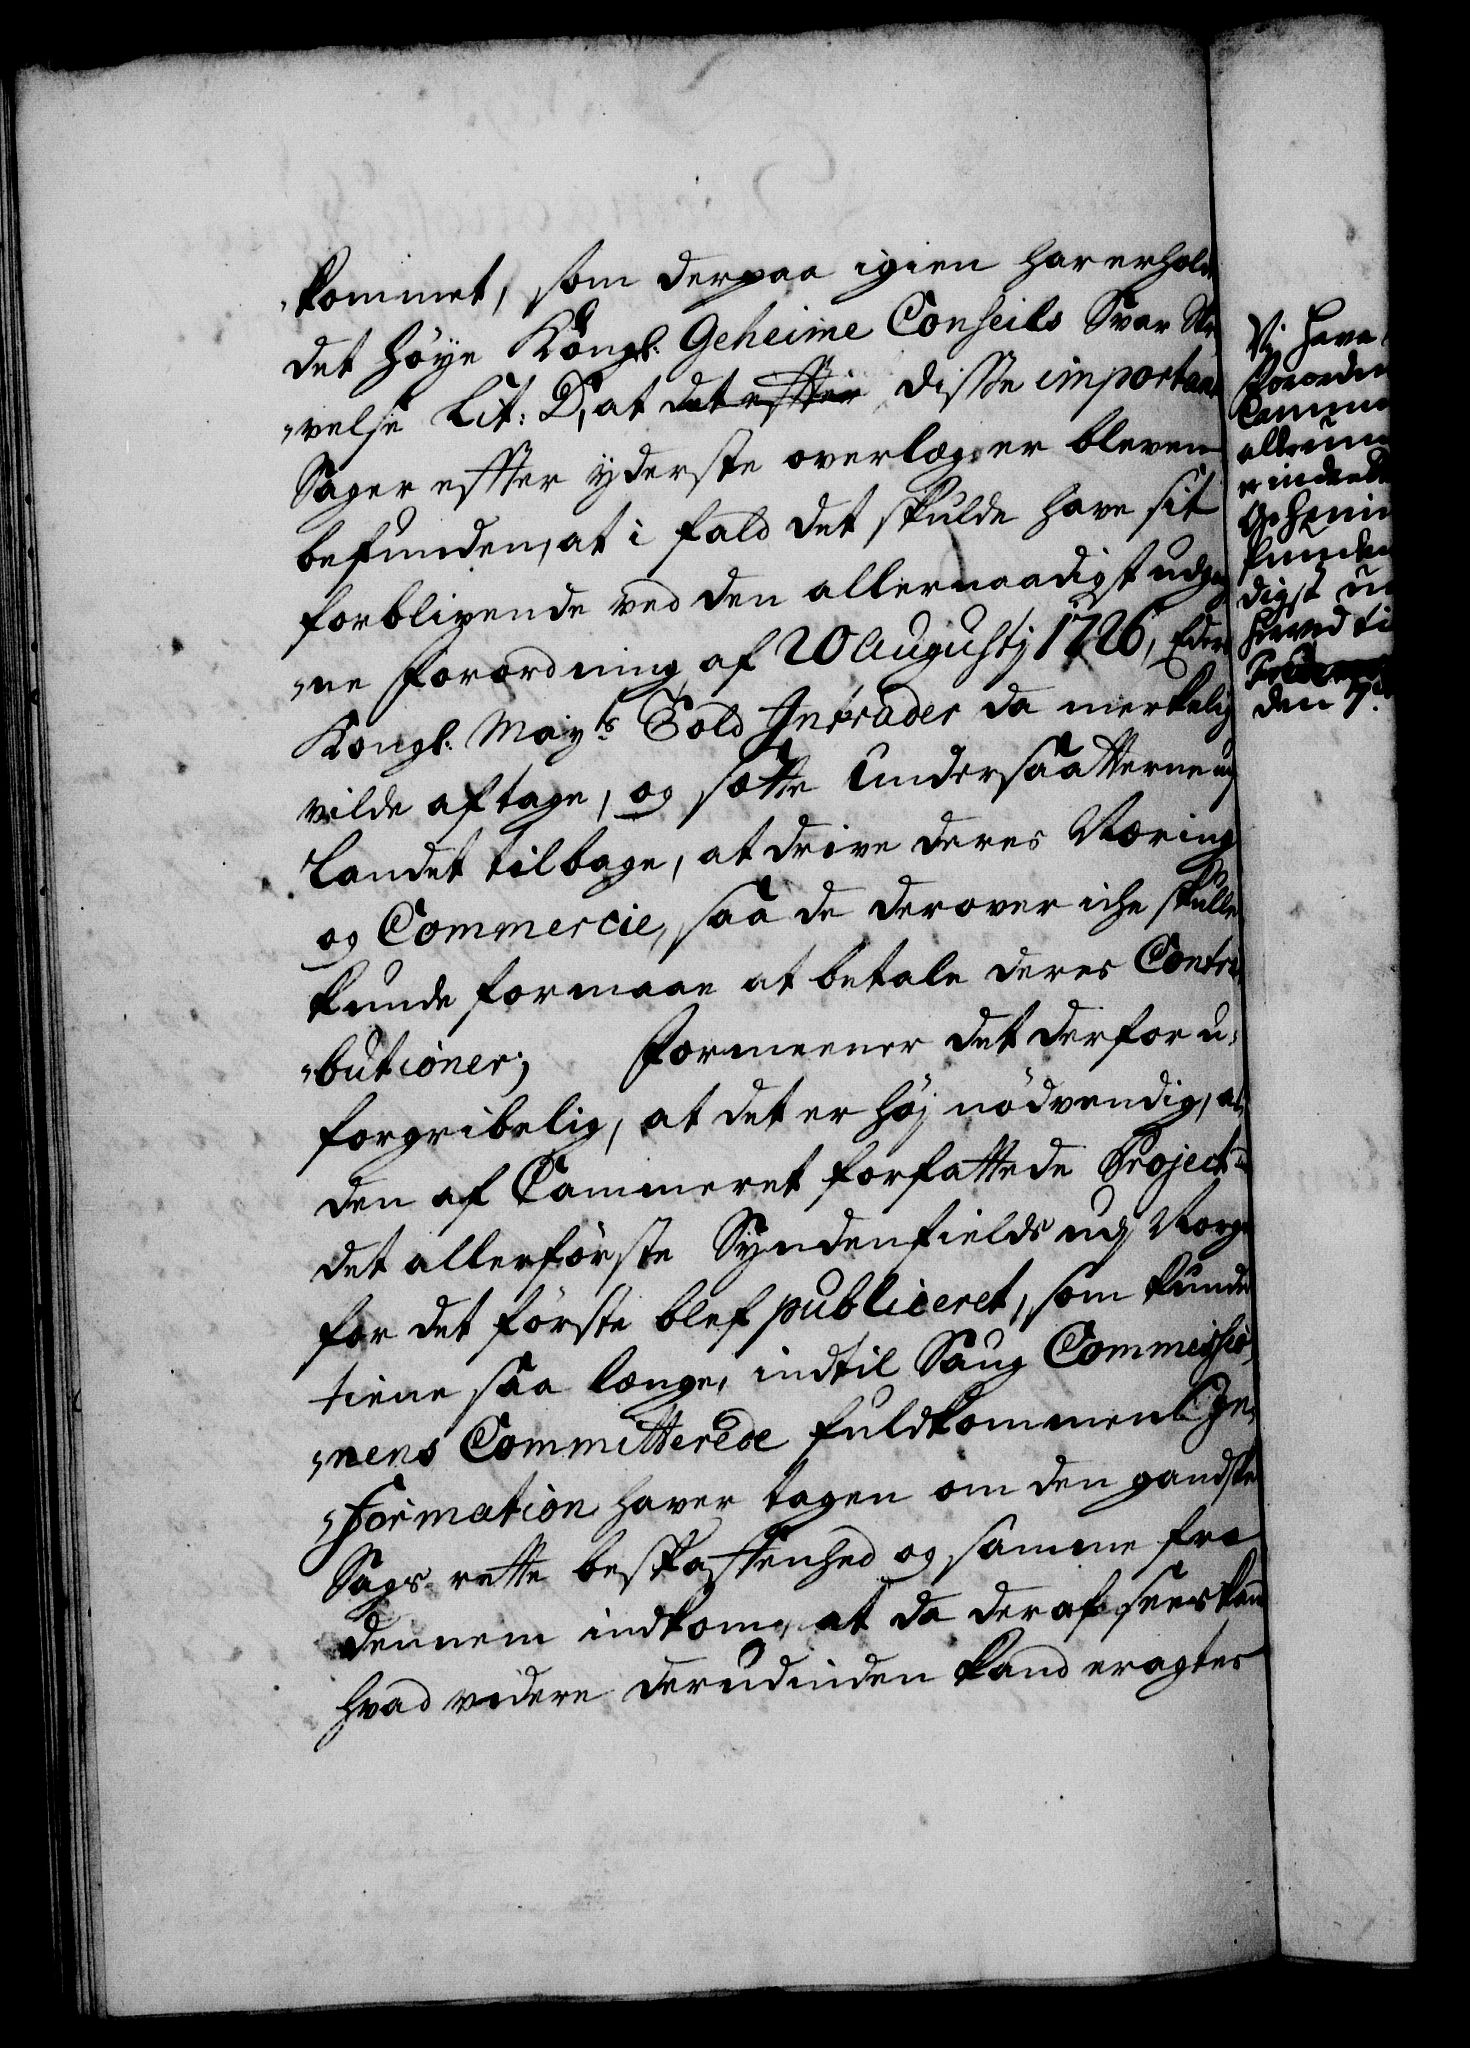 „kommet, som derpaa igien har erhold
det høye Kongl: Geheime Conseils Svar Skri,
„velse Lit: D, at det efter disse importan
Sager efter yderste overlæg er bleven
befunden, at i fald det skulde have sit
forblivende ved den allernaadigst udgag
„ne Forordning af 20 Augustj 1726, Eders
Kongl: Mayts Told Intrader da merkelig
vilde aftage, og sætte Undersaatterne udj
Landet tilbage, at drive deres Næring
og Commercie, saa de derover iche skulle
kunde formaae at betale deres Contri„
„butioner; Formeener det derfor u„
forgribelig, at det er høj nødvendig, at
den af Cammeret forfattede Project
det allerførste Syndenfields udj Norge
for det første blef publiceret, som kunde
tiene saa længe, indtil Saug Commissio„
„nens Committerede fuldkommen In„
„formation haver tagen om den gandske
Sags rette beskaffenhed og samme fra
dennem indkom, at da deraf sees kand
hvad videre derudinden kand eragtes
Vi have
Forordn
Camme
allerun
erindred
Geheim
kunde
digst
herved ti
Friderichs
den 7.